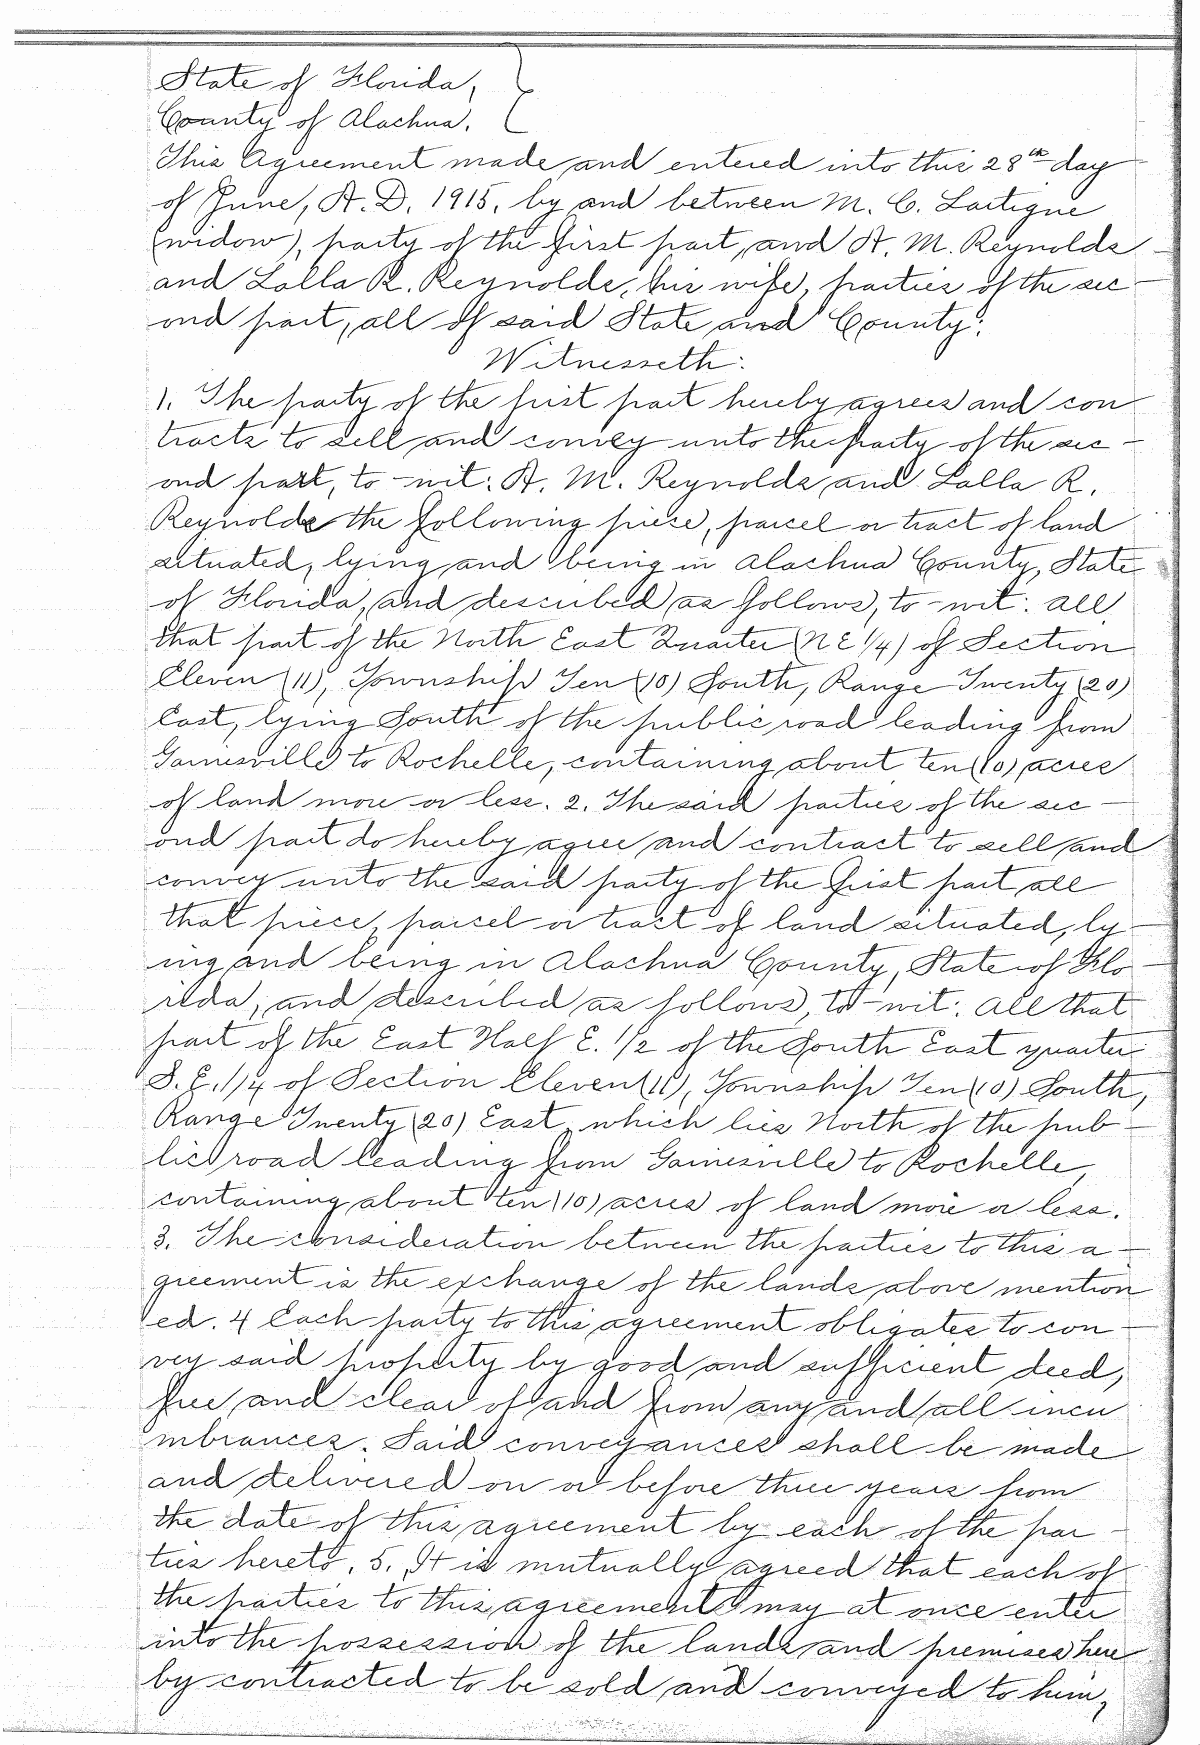 State of Florida,
County of Alachua.
This Agreement made and entered into this 28th day
of June, A.D. 1915, by and between M. C. Lartigue
(widow), party of the first part, and A. M. Reynolds
and Lalla R. Reynolds, his wife, parties of the sec-
ond part, all of said State and County:
Witnesseth:
1. The party of the first part hereby agrees and con
tracts to sell and convey unto the party of the sec-
ond part, to-wit: A. M. Reynolds and Lalla R.
Reynolds the following piece, parcel or tract of land
situated, lying and being in Alachua County, State
of Florida, and described as follows, to-wit: All
that part of the North East Quarter (N E 1/4) of Section
Eleven (11), Township Ten (10) South, Range Twenty (20)
East, lying South of the public road leading from
Gainesville to Rochelle, containing about ten (10) acres
of land more or less. 2. The said parties of the sec-
ond part do hereby agree and contract to sell and
convey unto the said party of the first part all
that piece, parcel or tract of land situated, ly-
ing and being in Alachua County, State of Flo-
rida, and described as follows, to-wit: All that
part of the East Half E. 1/2 of the South East quarter
S.E. 1/4 of Section Eleven (11), Township Ten (10) South,
Range Twenty (20) East, which lies North of the pub-
lic road leading from Gainesville to Rochelle,
containing about ten (10) acres of land more or less.
3. The consideration between the parties to this a-
greement is the exchange of the lands above mention
ed. 4 Each party to this agreement obligates to con-
vey said property by good and sufficient deed,
free and clear of and from any and all incu
mbrances. Said conveyances shall be made
and delivered on or before three years from
the date of this agreement by each of the par-
ties hereto. 5. It is mutually agreed that each of
the parties to this agreement may at once enter
into the possession of the lands and premises here
by contracted to be sold and conveyed to him,